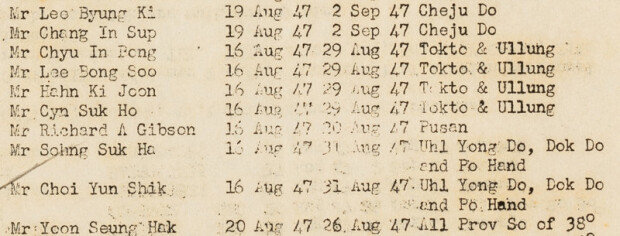 Mr Lee Byung Ki 19 Aug 47 2 Sep 47 Cheju Do
Mr Chang In Sup 19 Aug 47 2 Sep 47 Cheju Do
Mr Chyu In Bong 16 Aug 47 29 Aug 47 Tokto & Ullung
Mr Lee Bong Soo 16 Aug 47 29 Aug 47 Tokto & Ullung
Mr Hahn Ki Joon 16 Aug 47 29 Aug 47 Tokto & Ullung
Mr Cyn Suk Ho 16 Aug 47 29 Aug 47 Tokto & Ullung
Mr Richard A Gibson 16 Aug 47 20 Aug 47 Pusan
Mr Sohng Suk Ha 16 Aug 47 31 Aug 47 Uhl Yong Do, Dok Do
and Po Hand
Mr Choi Yun Shik 16 Aug 47 31 Aug 47 Uhl Yong Do, Dok Do
and Po Hand
Mr Yoon Seung Hak 20 Aug 47 26 Aug 47 All Prov So of 38°